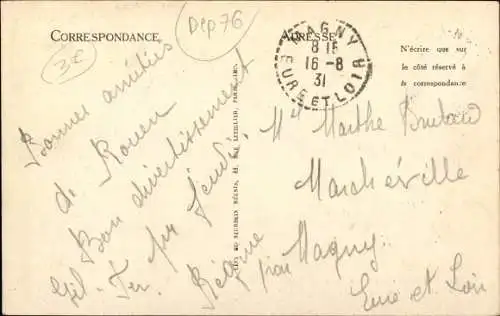 CORRESPONDANCE
Dép 76
3€
ADRESSE
N'écrire que sur
le côté réservé à
la correspondance
MAGNY
8 15
16-8
31
EURE ET LOIR
Bonnes amitiés
de Rouen
Bon divertissement
pr Jeudi
Régine
Melle Marthe
Marchéville
par Magny
Eure et Loir